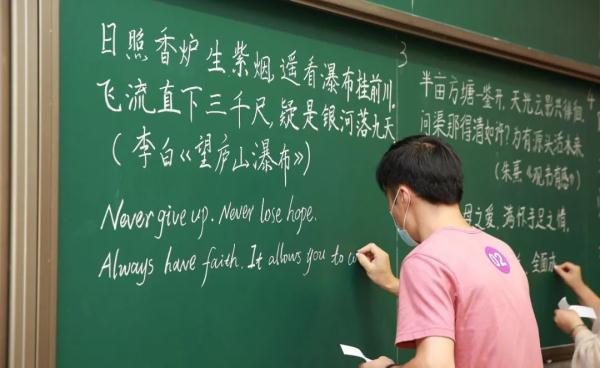 日照香炉生紫烟,遥看瀑布挂前川.
飞流直下三千尺,疑是银河落九天
(李白《望庐山瀑布》)
Never give up. Never lose hope.
Always have faith. It allows you to co
3
半亩方塘一鉴开,天光云影共徘徊.
问渠那得清如许?为有源头活水来
(朱熹《观书有感》)
母之爱,满怀手足之情.
全面
4
02